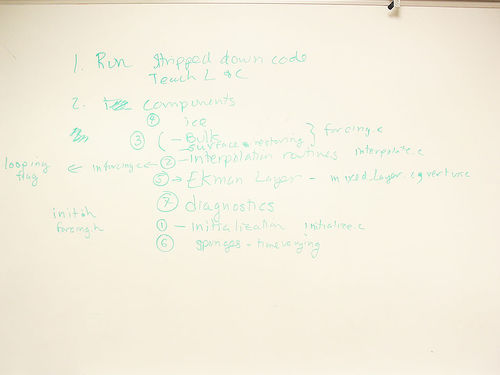 1. Run stripped down code
Teach L & C
2. components
4 ice
3 { - Bulk } forcing.c
- surface restoring
looping flag ← inforcing.c ← 2 - interpolation routines interpolate.c
5 → Ekman Layer - mixed_layer.c
7 diagnostics
init.h
forcing.h
1 - initialization initialize.c
6 sponges - time varying